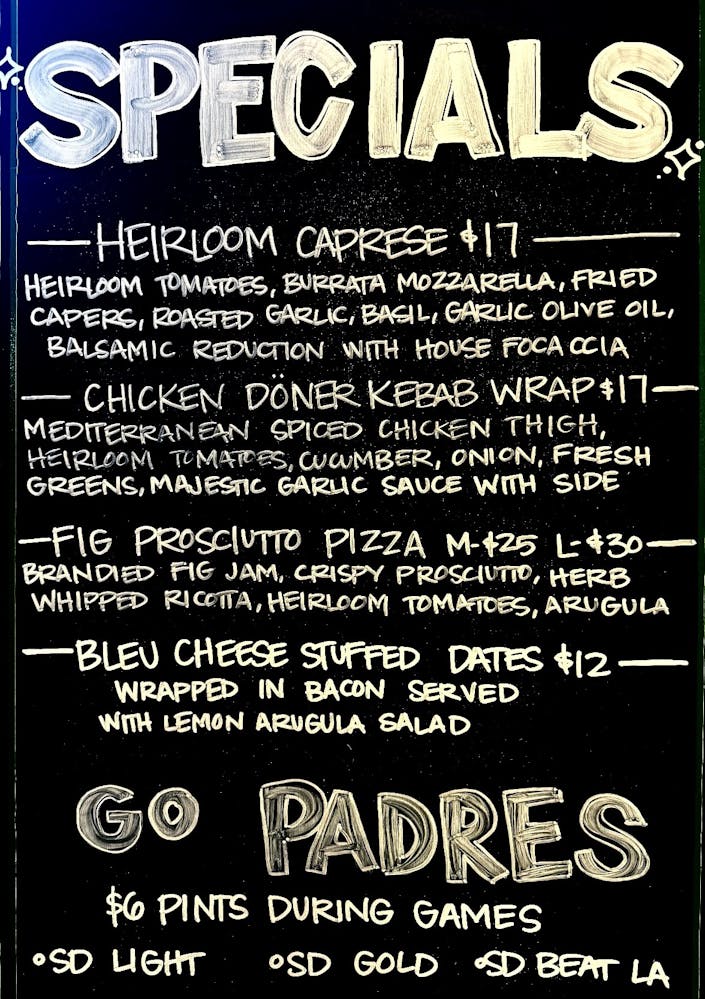 SPECIALS
HEIRLOOM CAPRESE $17
HEIRLOOM TOMATOES, BURRATA MOZZARELLA, FRIED
CAPERS, ROASTED GARLIC, BASIL, GARLIC OLIVE OIL,
BALSAMIC REDUCTION WITH HOUSE FOCACCIA
CHICKEN DÖNER KEBAB WRAP $17
MEDITERRANEAN SPICED CHICKEN THIGH,
HEIRLOOM TOMATOES, CUCUMBER, ONION, FRESH
GREENS, MAJESTIC GARLIC SAUCE WITH SIDE
FIG PROSCIUTTO PIZZA M-$25 L-$30
BRANDIED FIG JAM, CRISPY PROSCIUTTO, HERB
WHIPPED RICOTTA, HEIRLOOM TOMATOES, ARUGULA
BLEU CHEESE STUFFED DATES $12
WRAPPED IN BACON SERVED
WITH LEMON ARUGULA SALAD
GO PADRES
$6 PINTS DURING GAMES
•SD LIGHT •SD GOLD •SD BEAT LA